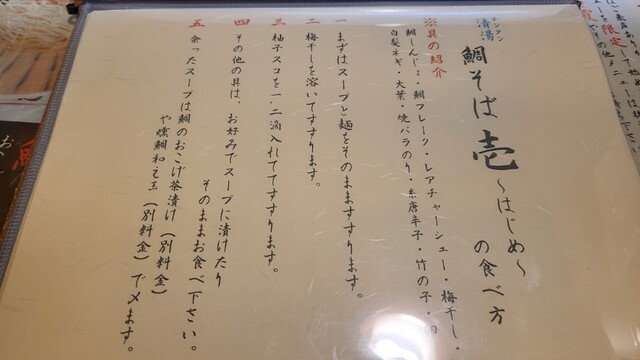 清湯
チンタン
鯛そば壱〜はじめ〜の食べ方
※具の紹介
鯛しんじょ・鯛フレーク・レアチャーシュー・梅干し・
白髪ネギ・大葉・焼バラのり・糸唐辛子・竹の子・
一 まずはスープと麺をそのまますすります。
二 梅干しを溶いてすすります。
三 柚子スコを一、二滴入れてすすります。
四 その他の具は、お好みでスープに漬けたり
そのままお食べ下さい。
五 余ったスープは鯛のおこげ茶漬け(別料金)
や燻鯛和え玉(別料金)で〆ます。
限定